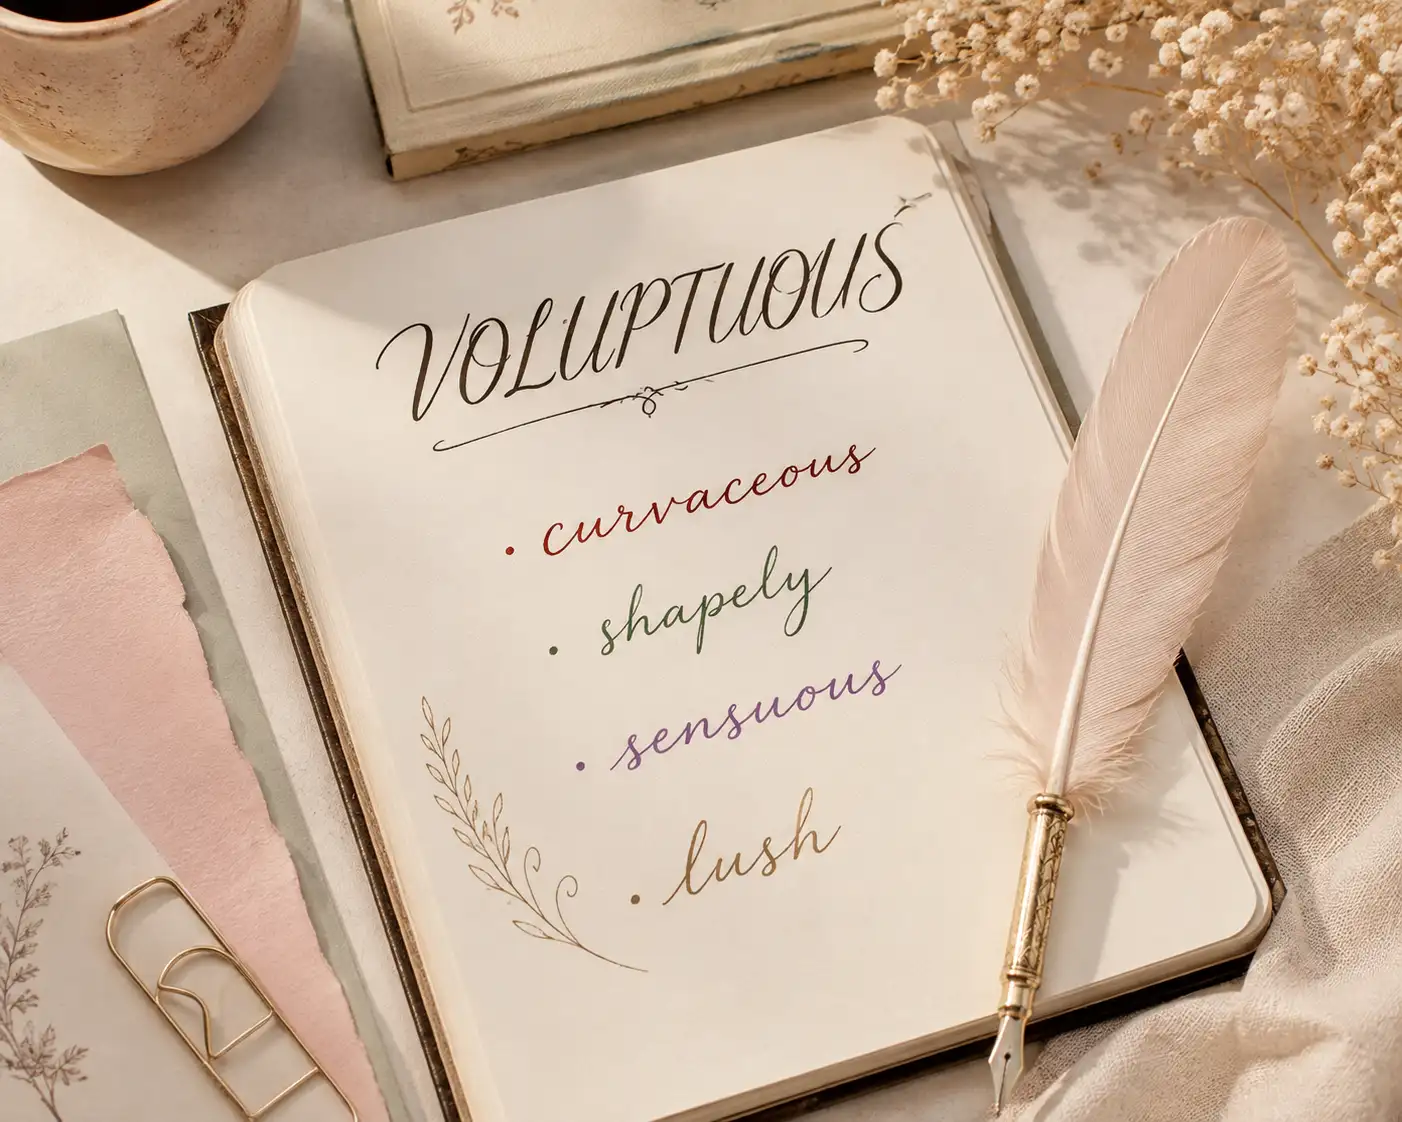 VOLUPTUOUS
• curvaceous
• shapely
• sensuous
• lush